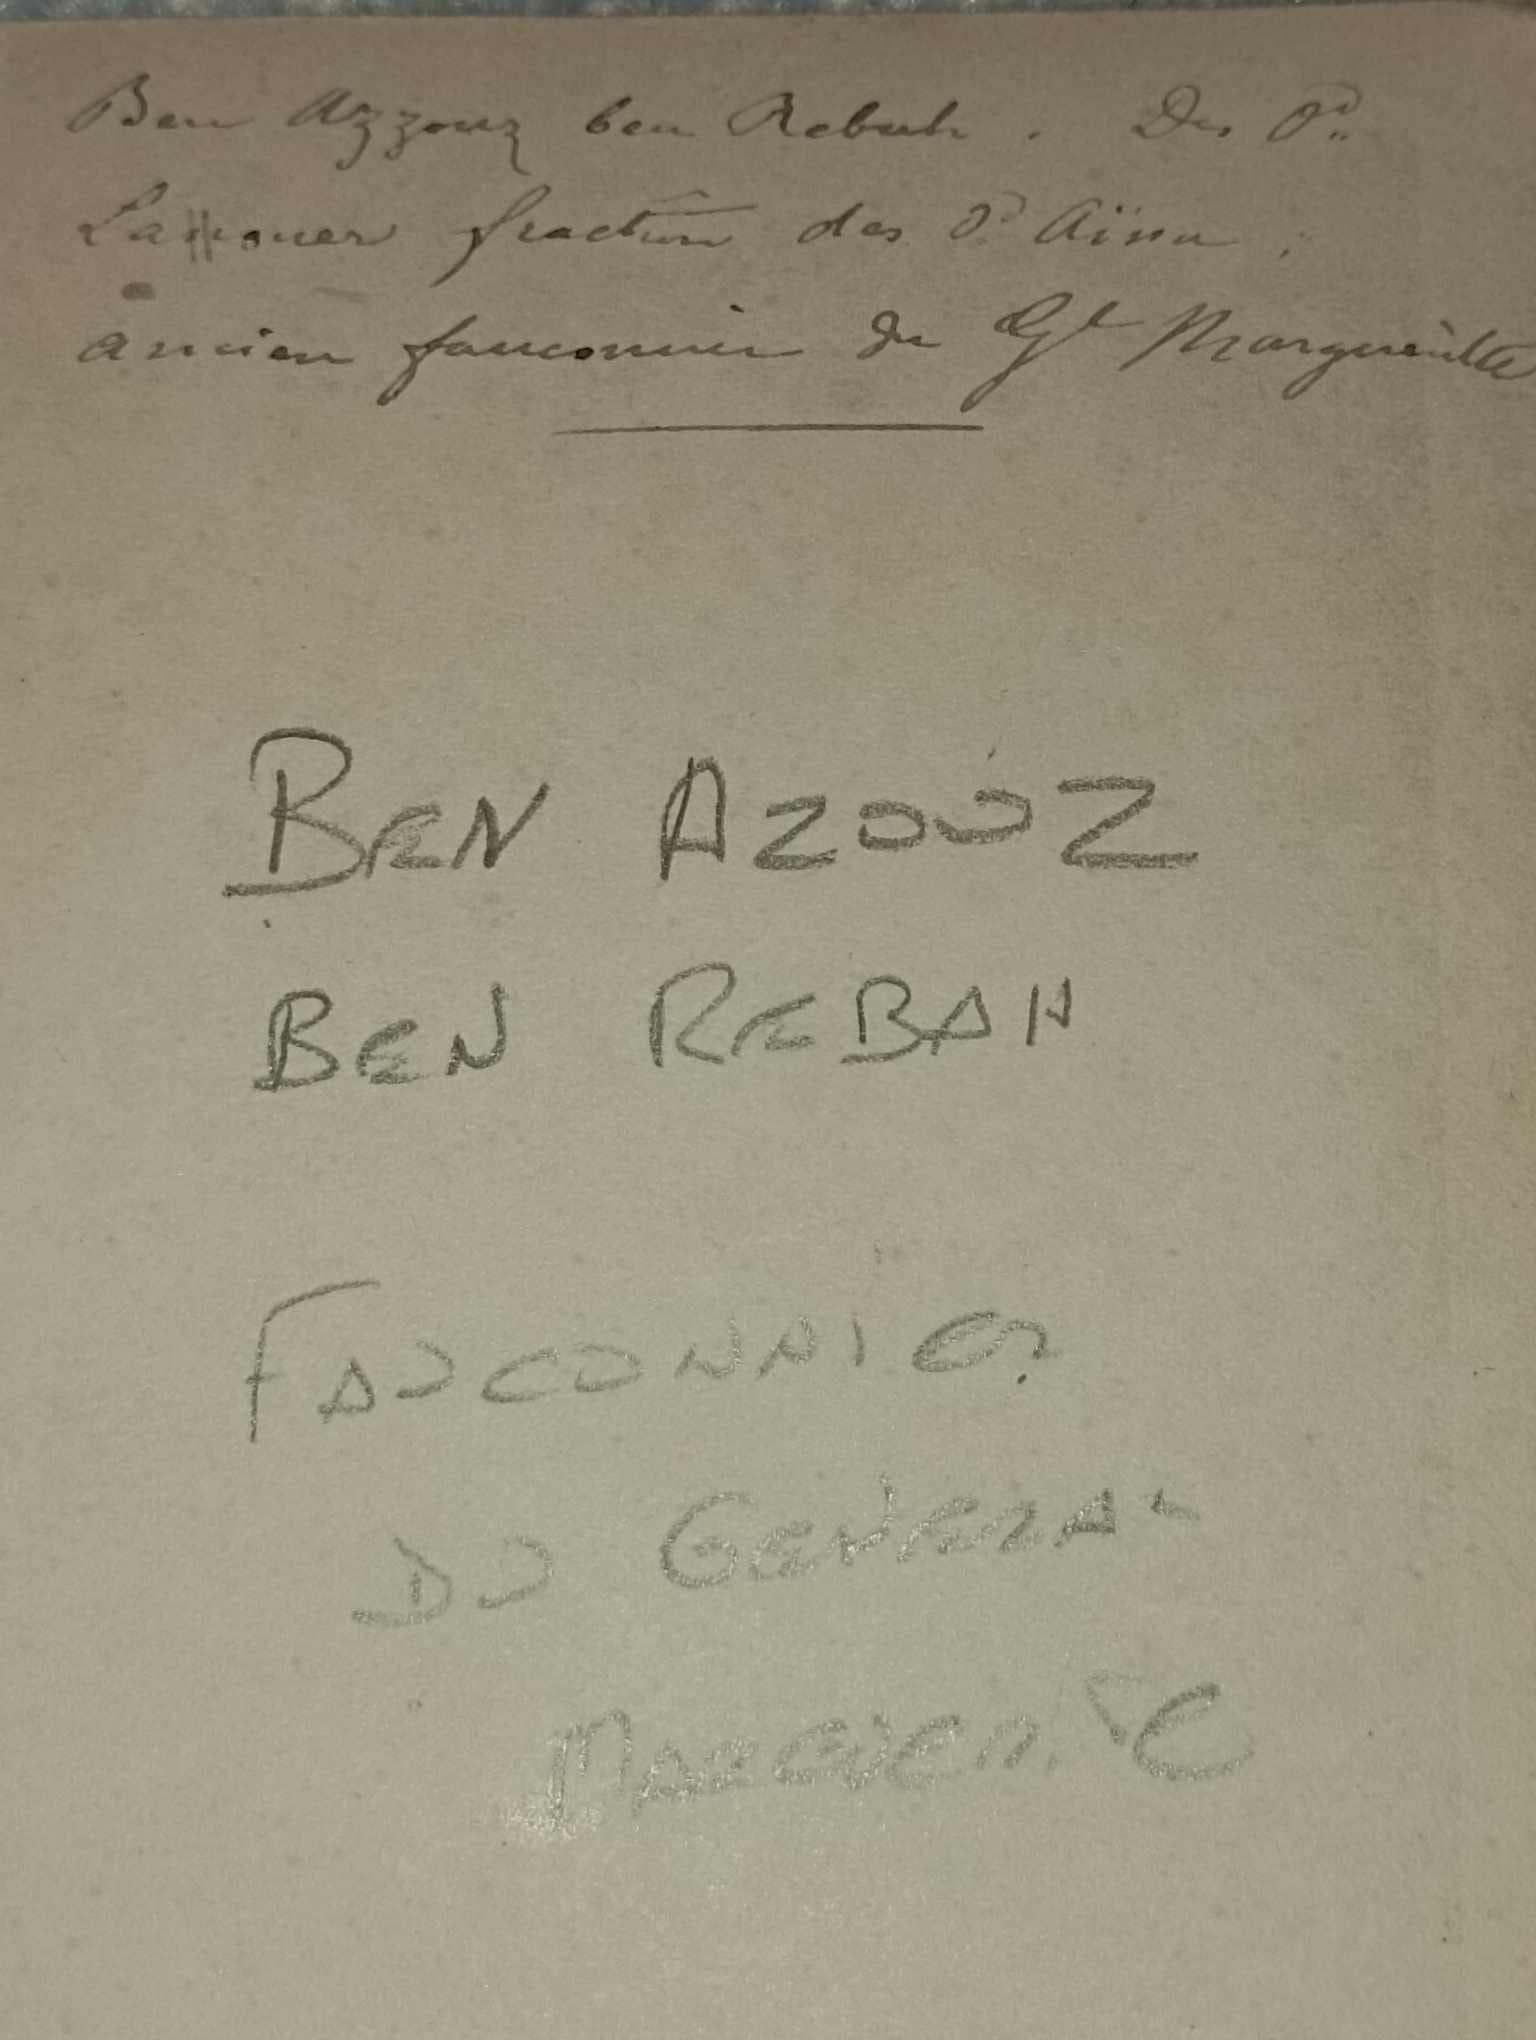 Ben Azzouz ben Rebah. Des Od.
fraction des Od. Aïssa.
ancien fauconnier du Gl Margueritte
BEN AZOUZ
BEN REBAH
FAUCONNIER
DU GENERAL
MARGUERITTE